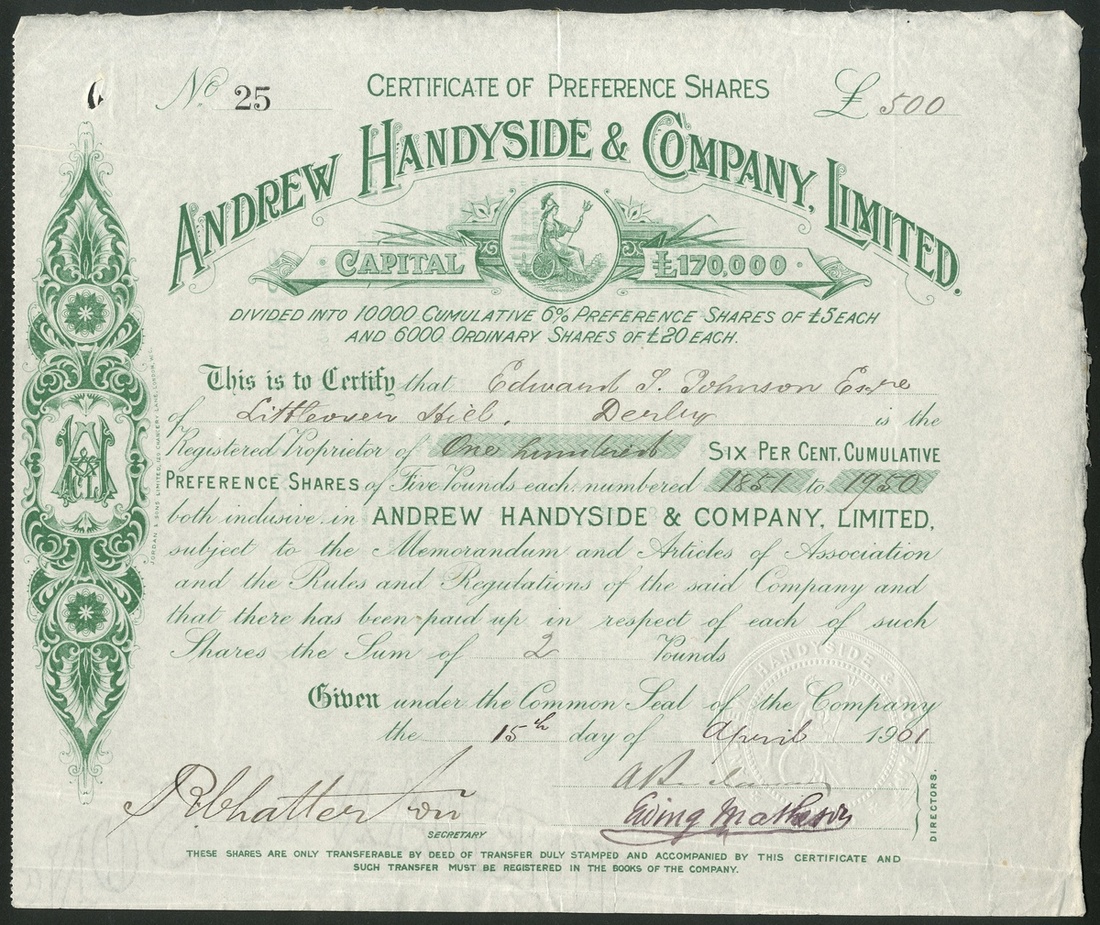 No 25
CERTIFICATE OF PREFERENCE SHARES
£ 500
ANDREW HANDYSIDE & COMPANY, LIMITED.
CAPITAL £170,000
DIVIDED INTO 10000 CUMULATIVE 6% PREFERENCE SHARES OF £5 EACH
AND 6000 ORDINARY SHARES OF £20 EACH.
This is to Certify that Edward S. Johnson Esqre
of Littleover Hill, Derby is the
Registered Proprietor of One hundred SIX PER CENT. CUMULATIVE
PREFERENCE SHARES of Five Pounds each, numbered 1851 to 1950
both inclusive in ANDREW HANDYSIDE & COMPANY, LIMITED,
subject to the Memorandum and Articles of Association
and the Rules and Regulations of the said Company and
that there has been paid up in respect of each of such
Shares the Sum of 2 Pounds
Given under the Common Seal of the Company
the 15th day of April 1901
Ewing Matheson
DIRECTORS.
SECRETARY
THESE SHARES ARE ONLY TRANSFERABLE BY DEED OF TRANSFER DULY STAMPED AND ACCOMPANIED BY THIS CERTIFICATE AND
SUCH TRANSFER MUST BE REGISTERED IN THE BOOKS OF THE COMPANY.
JORDAN & SONS LIMITED, 120 CHANCERY LANE, LONDON, W.C.
HANDYSIDE & CO